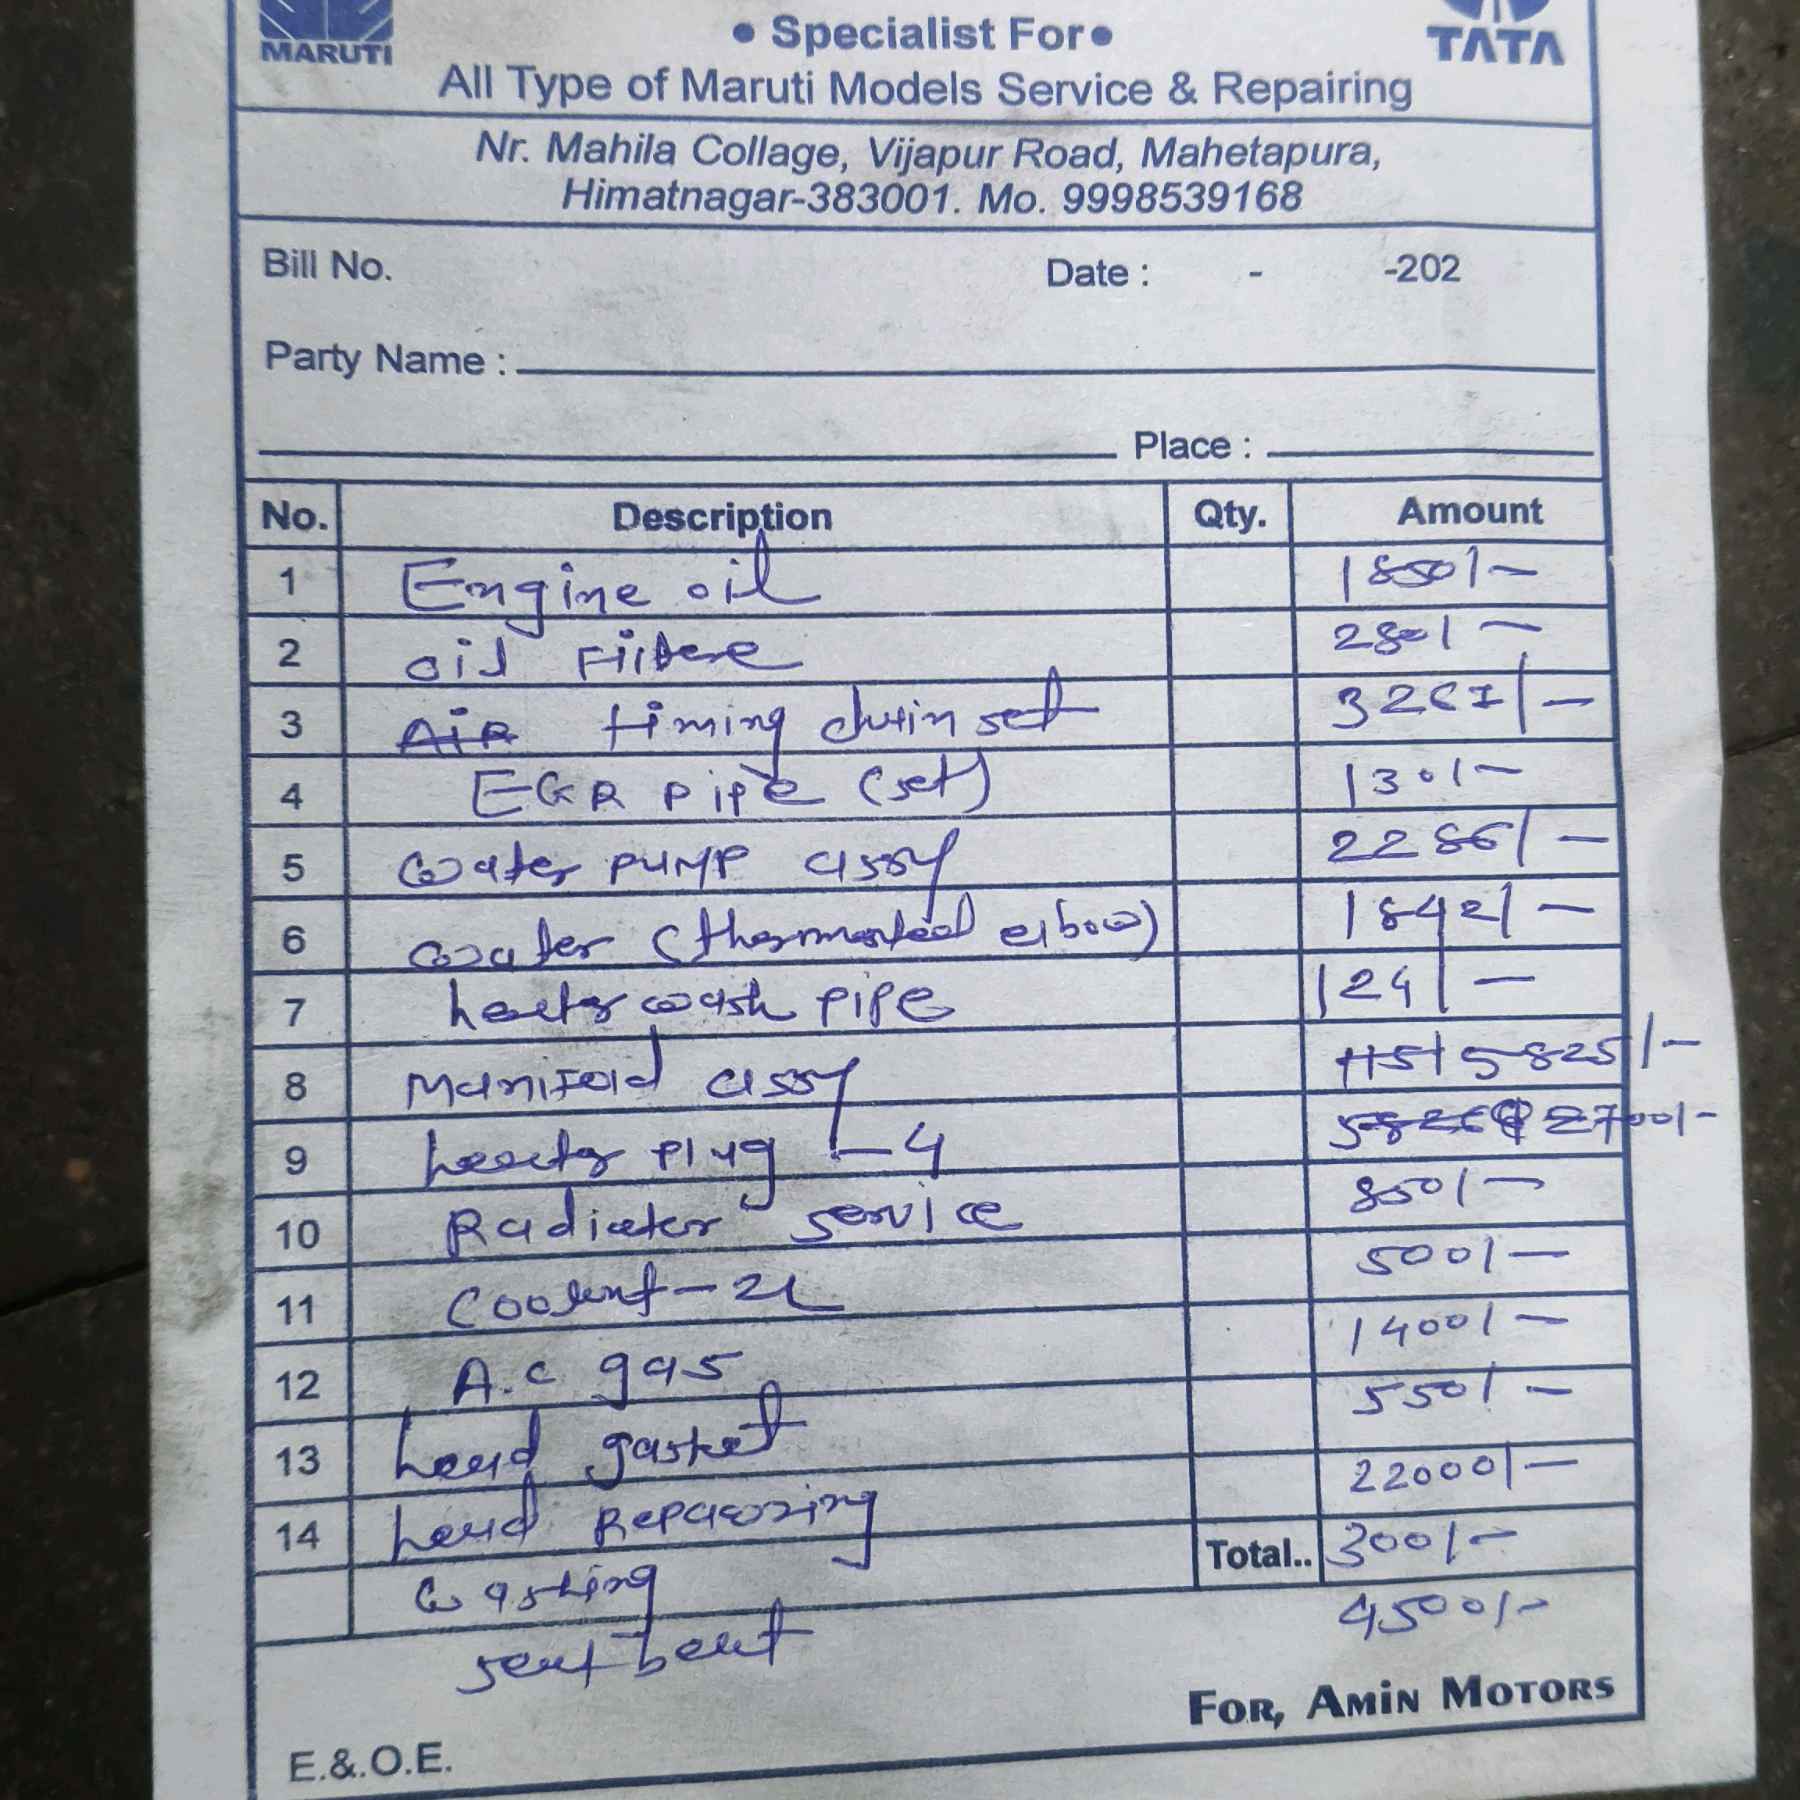 MARUTI
• Specialist For •
TATA
All Type of Maruti Models Service & Repairing
Nr. Mahila Collage, Vijapur Road, Mahetapura,
Himatnagar-383001. Mo. 9998539168
Bill No. Date : - -202
Party Name :
Place :
No. Description Qty. Amount
1 Engine oil 1850/-
2 oil Filtere 280/-
3 AiR timing chain set 3261/-
4 EGR pipe (set) 130/-
5 water pump assy 2286/-
6 water ( elbow) 1842/-
7 heater wash pipe 124/-
8 Manifold assy 5825/-
9 heater plug - 4 2700/-
10 Radiater service 850/-
11 Coolent - 2L 500/-
12 A.C gas 1400/-
13 head gasket 550/-
14 head Repaering 22000/-
washing Total.. 300/-
seat beat 4500/-
FOR, AMIN MOTORS
E.&.O.E.